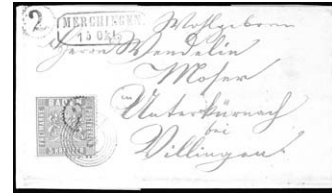 2
MERCHINGEN
15 Okt.
Wohlgeboren
Herrn Wendelin
Moser
in
Unterkürnach
bei
Villingen.
BADEN